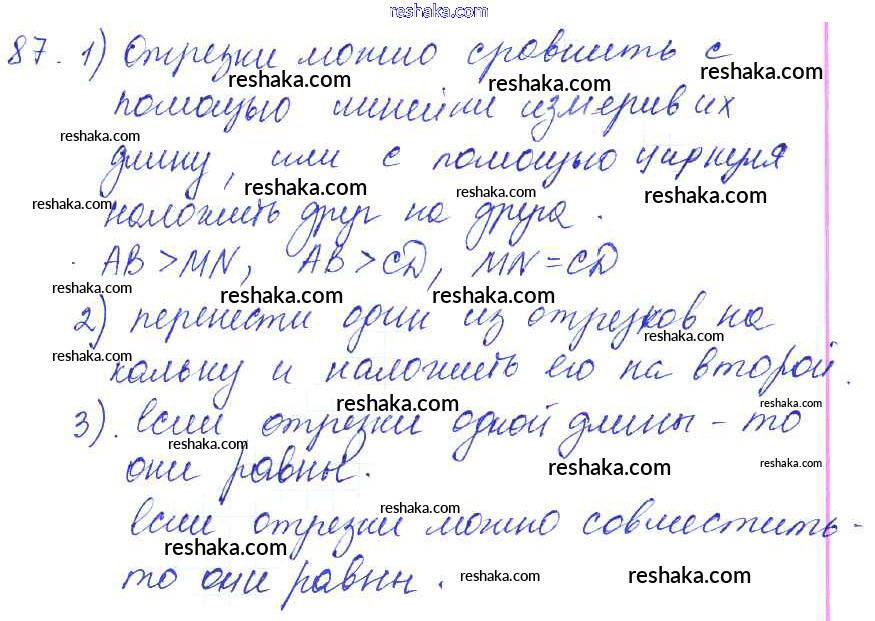 reshaka.com
87. 1) Отрезки можно сравнить с
reshaka.com reshaka.com reshaka.com
помощью линейки измерив их
reshaka.com
длину, или с помощью циркуля
reshaka.com reshaka.com reshaka.com
reshaka.com
наложить друг на друга.
AB > MN, AB > CD, MN = CD
reshaka.com reshaka.com reshaka.com
2) перенести один из отрезков на
reshaka.com
reshaka.com
кальку и наложить его на второй.
reshaka.com reshaka.com
3). Если отрезки одной длины - то
reshaka.com
они равны.
reshaka.com reshaka.com
reshaka.com
Если отрезки можно совместить -
reshaka.com
то они равны.
reshaka.com reshaka.com